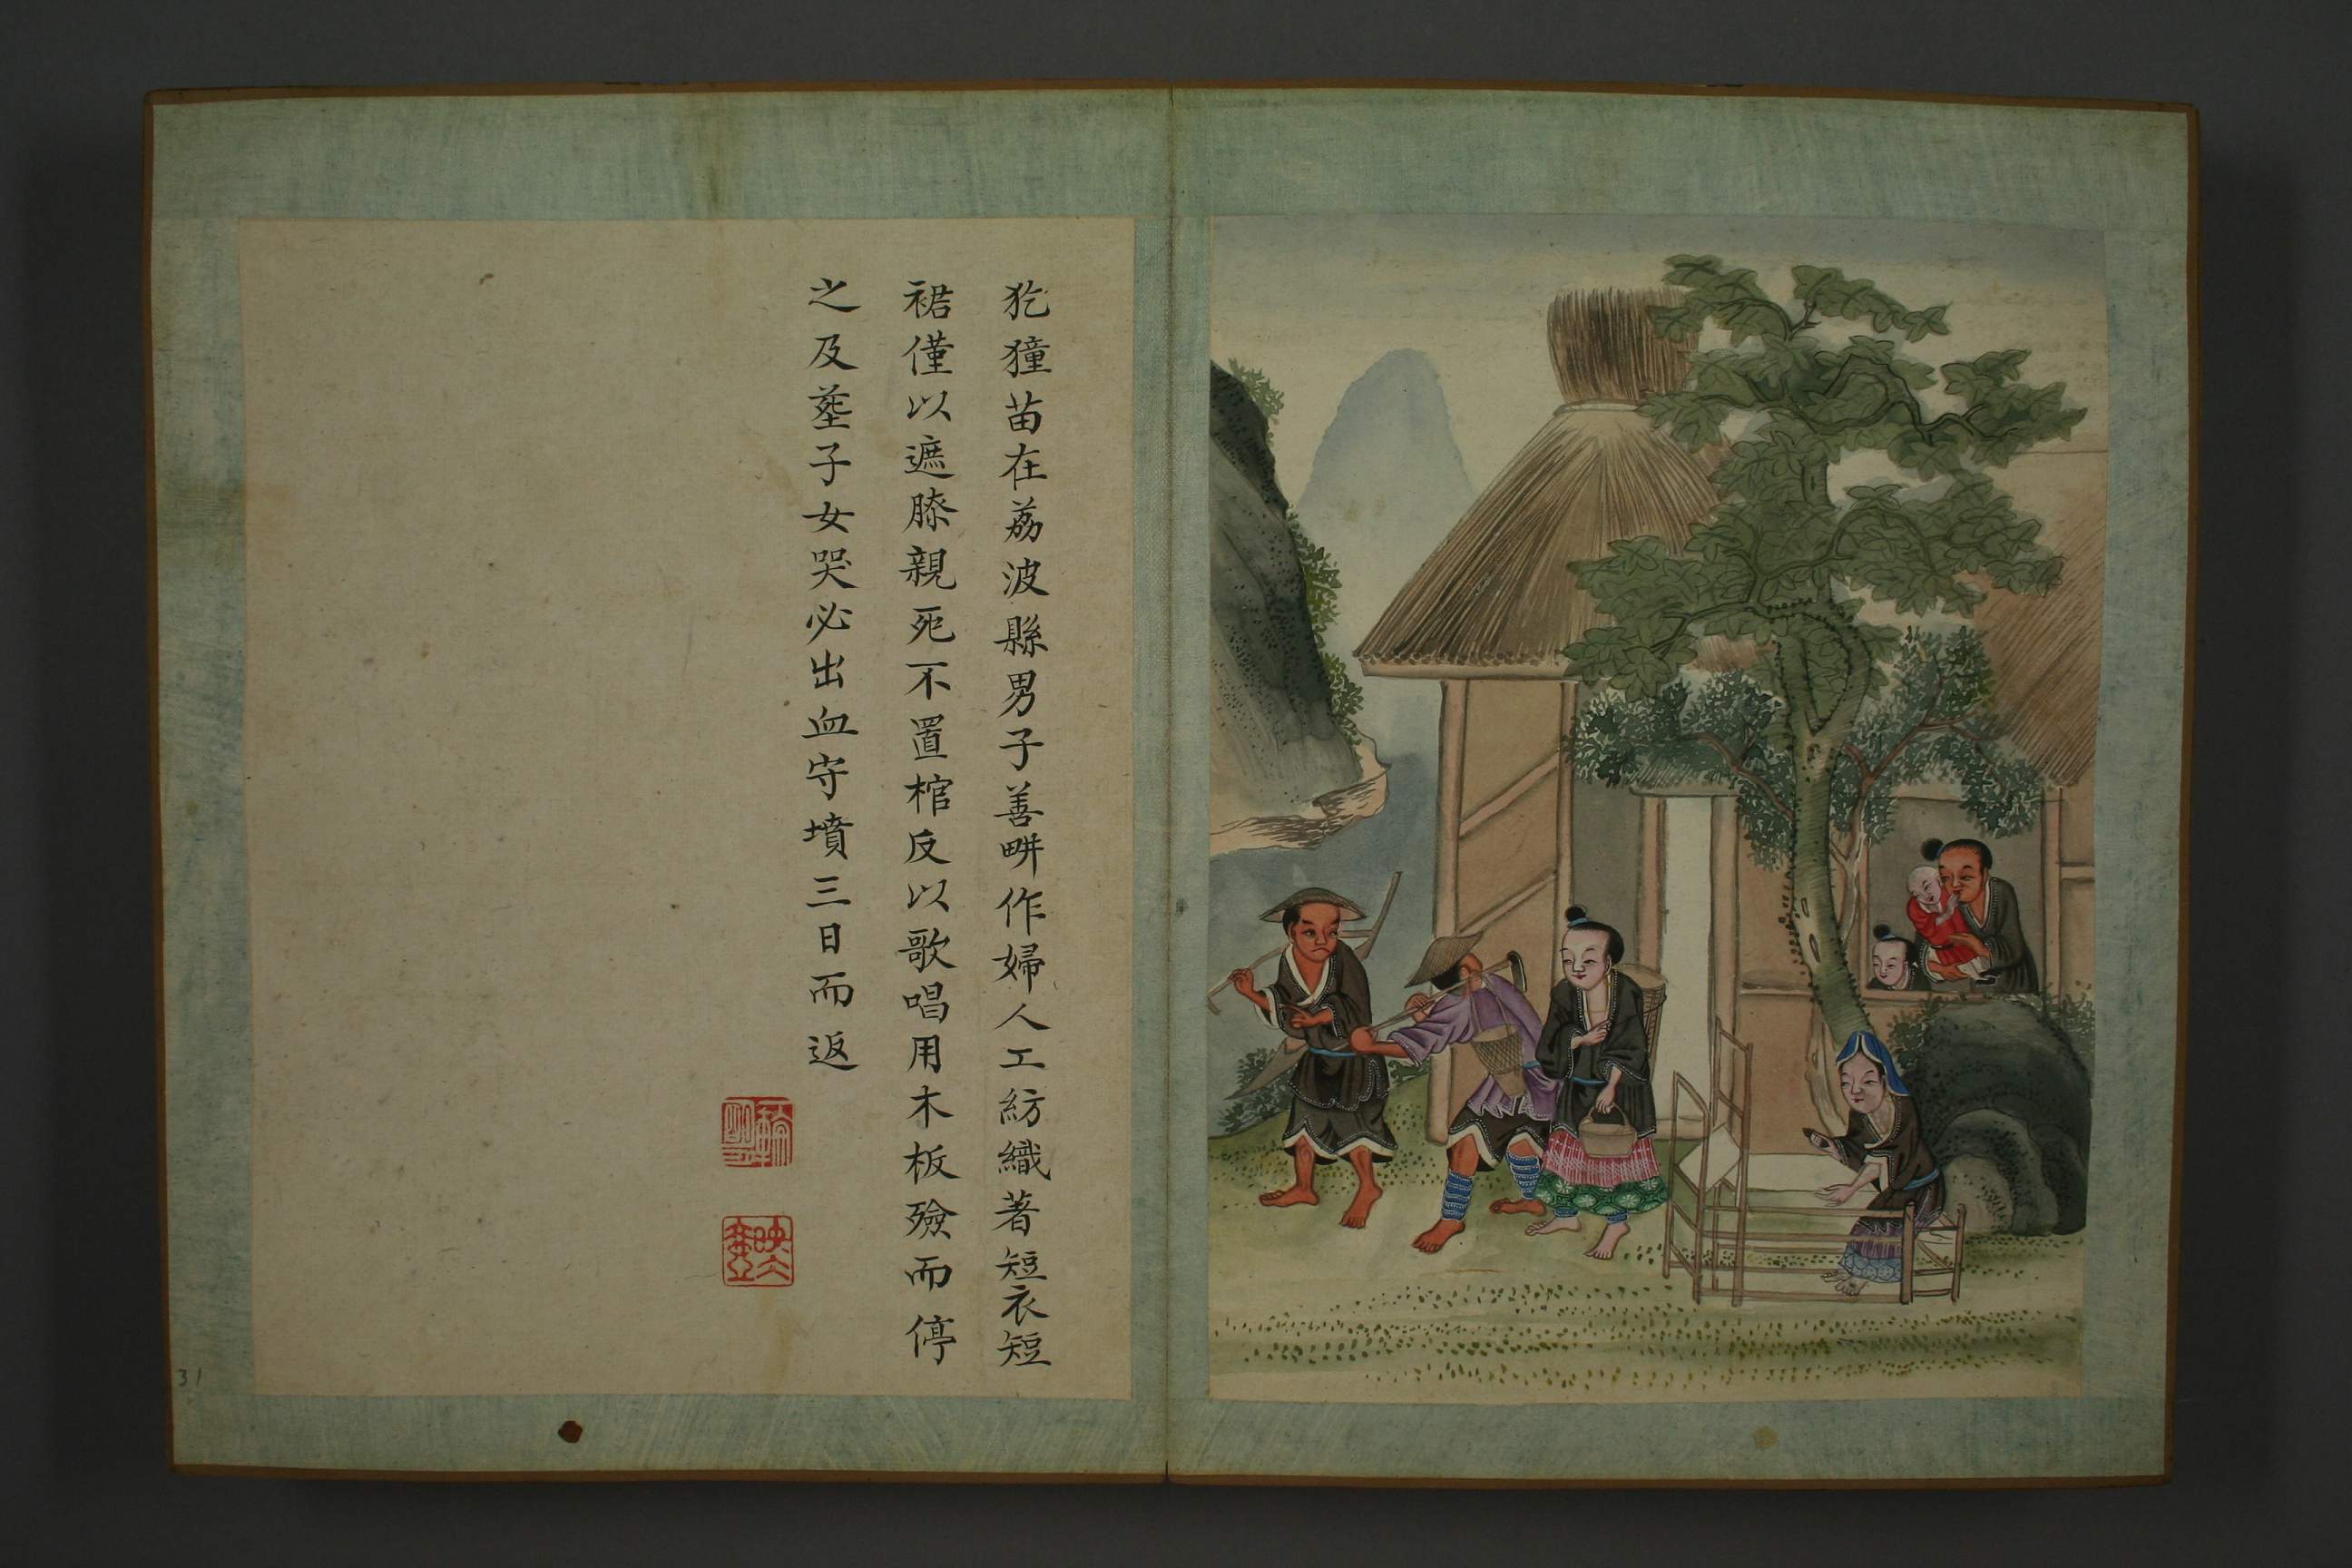 犵獞苗在荔波縣男子善畊作婦人工紡織著短衣短
裙僅以遮膝親死不置棺反以歌唱用木板殮而停
之及塟子女哭必出血守墳三日而返
31